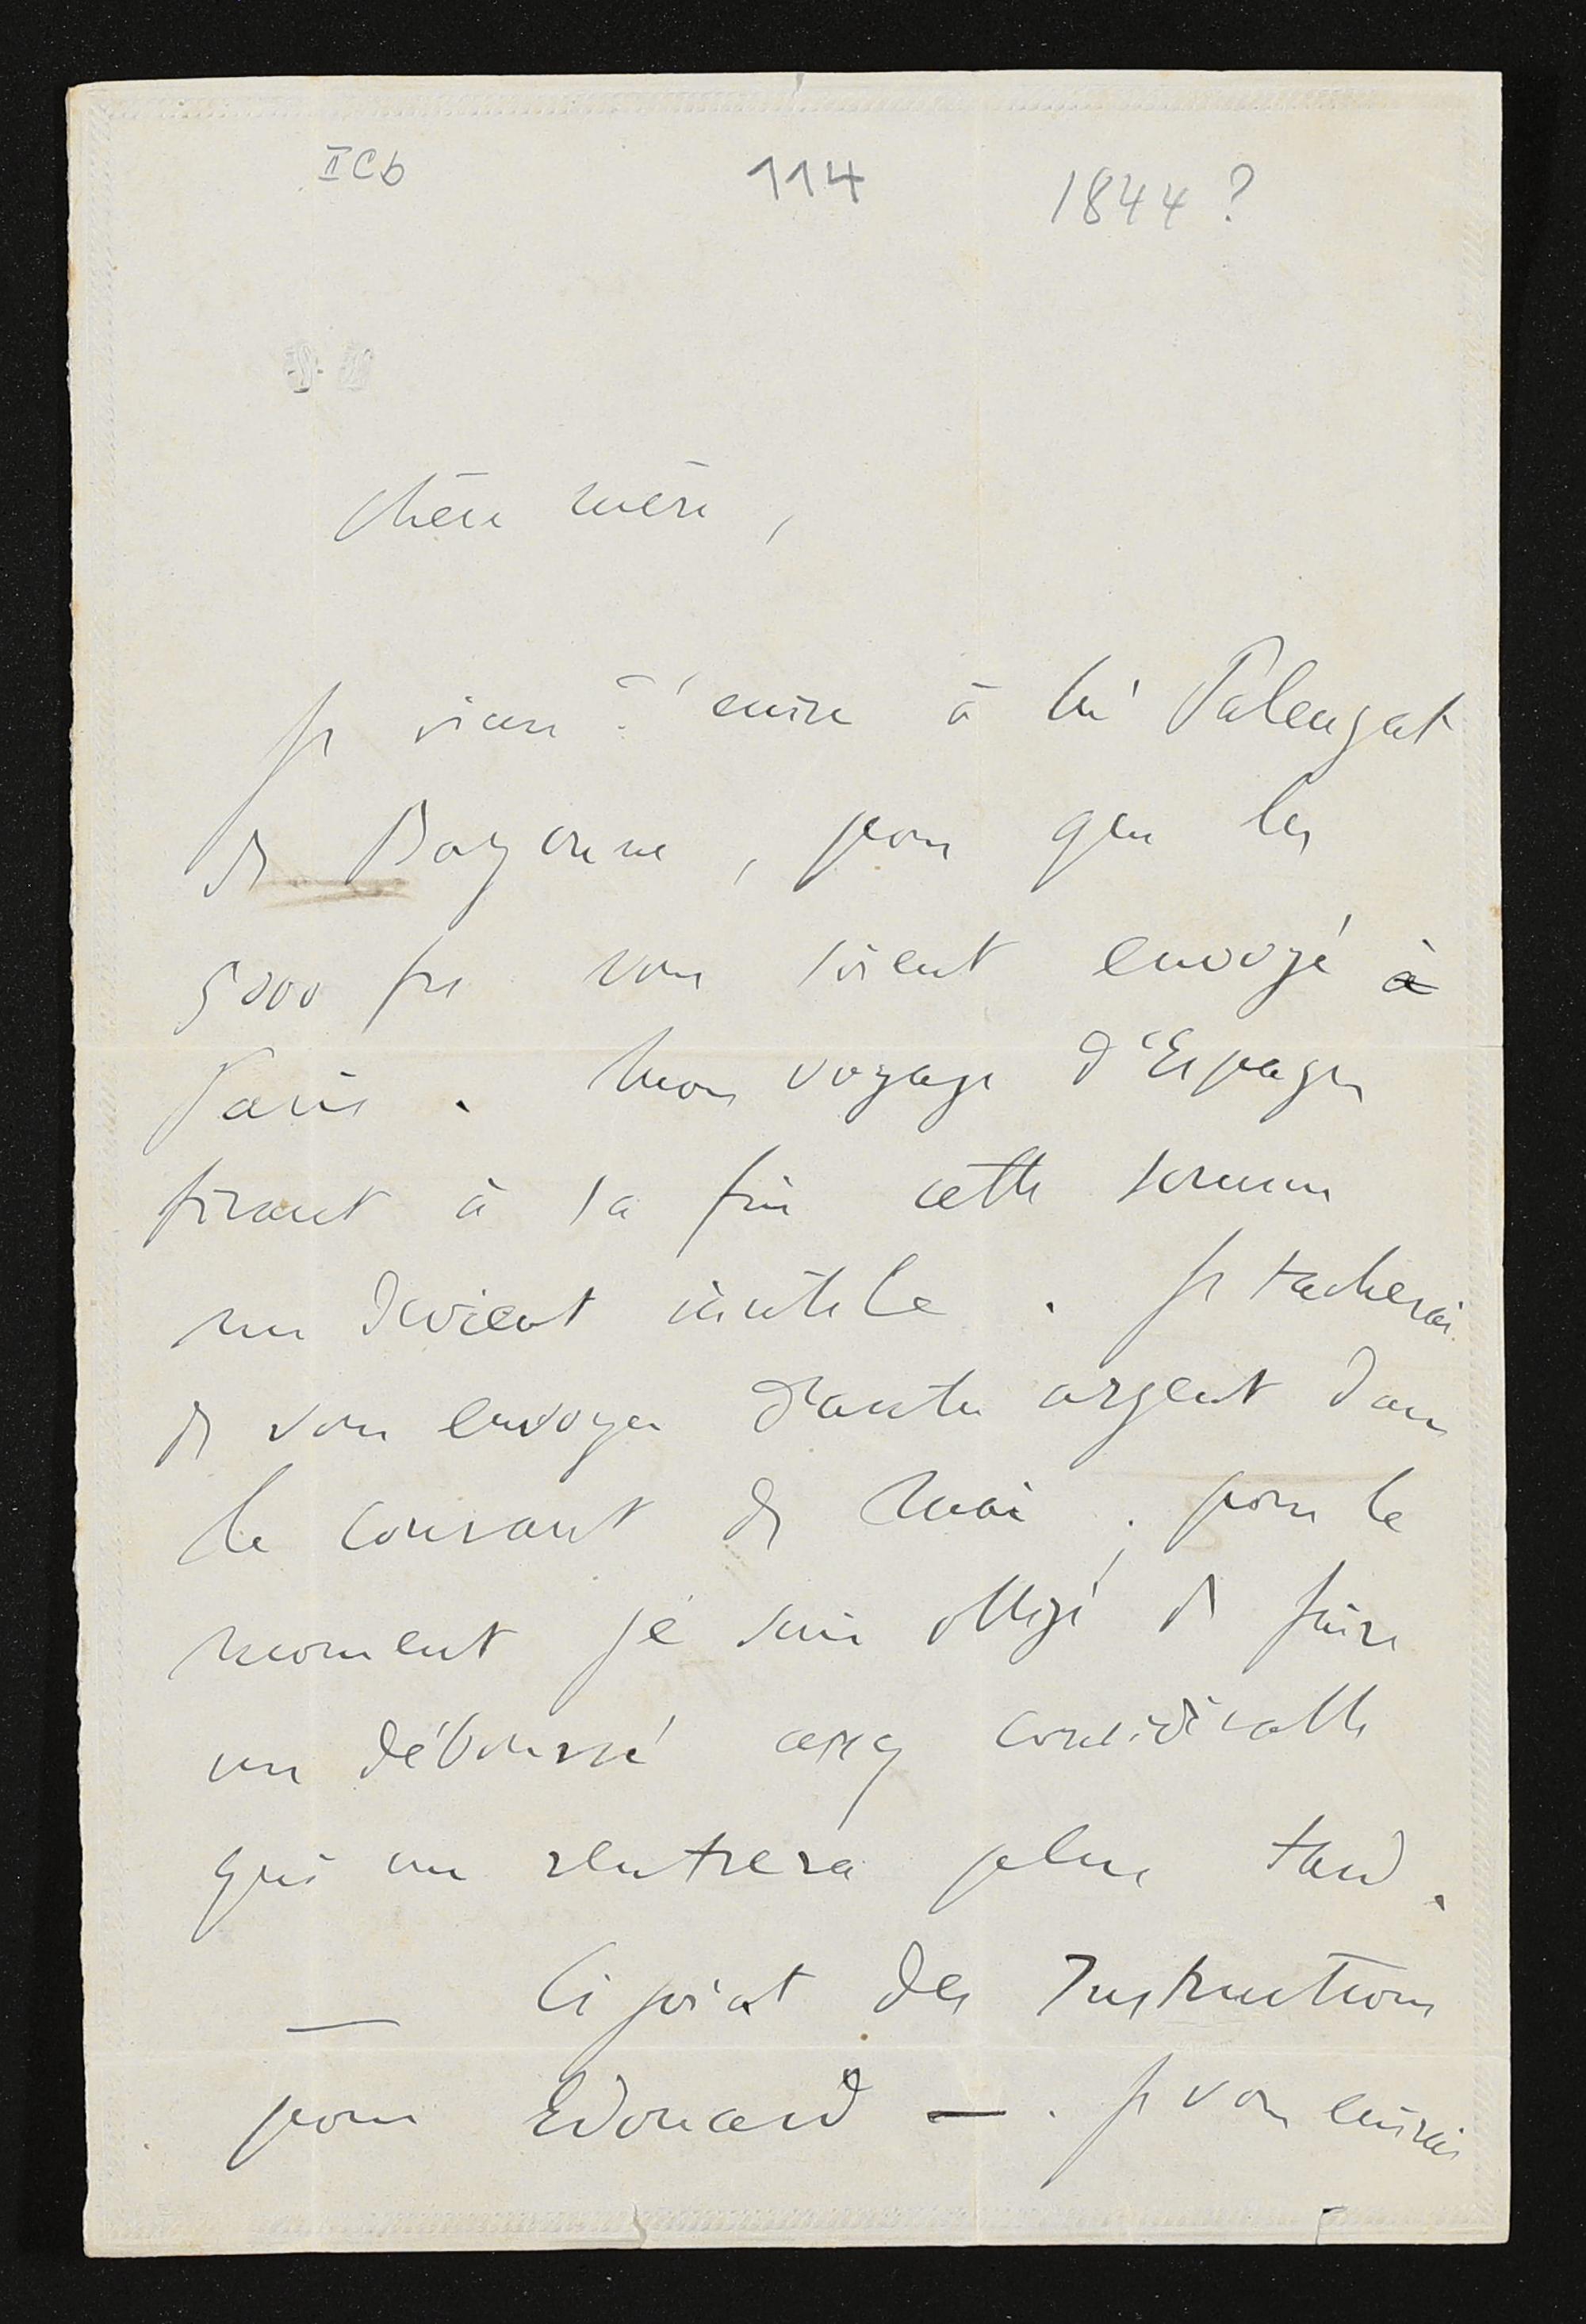 II C b 114 1844 ?
Chère mère,
Je viens d'écrire à Mr Palengat
de Bayonne, pour que les
5000 frs vous soient envoyé à
Paris. Mon voyage d'Espagne
tirant à sa fin cette somme
me devient inutile. Je tacherai
de vous envoyer d'autre argent dans
le courant de Mai; pour le
moment je suis obligé de faire
un déboursé assez considérable
qui me rentrera plus tard.
— Ci joint des Instructions
pour Edouard —. Je vous écrirai